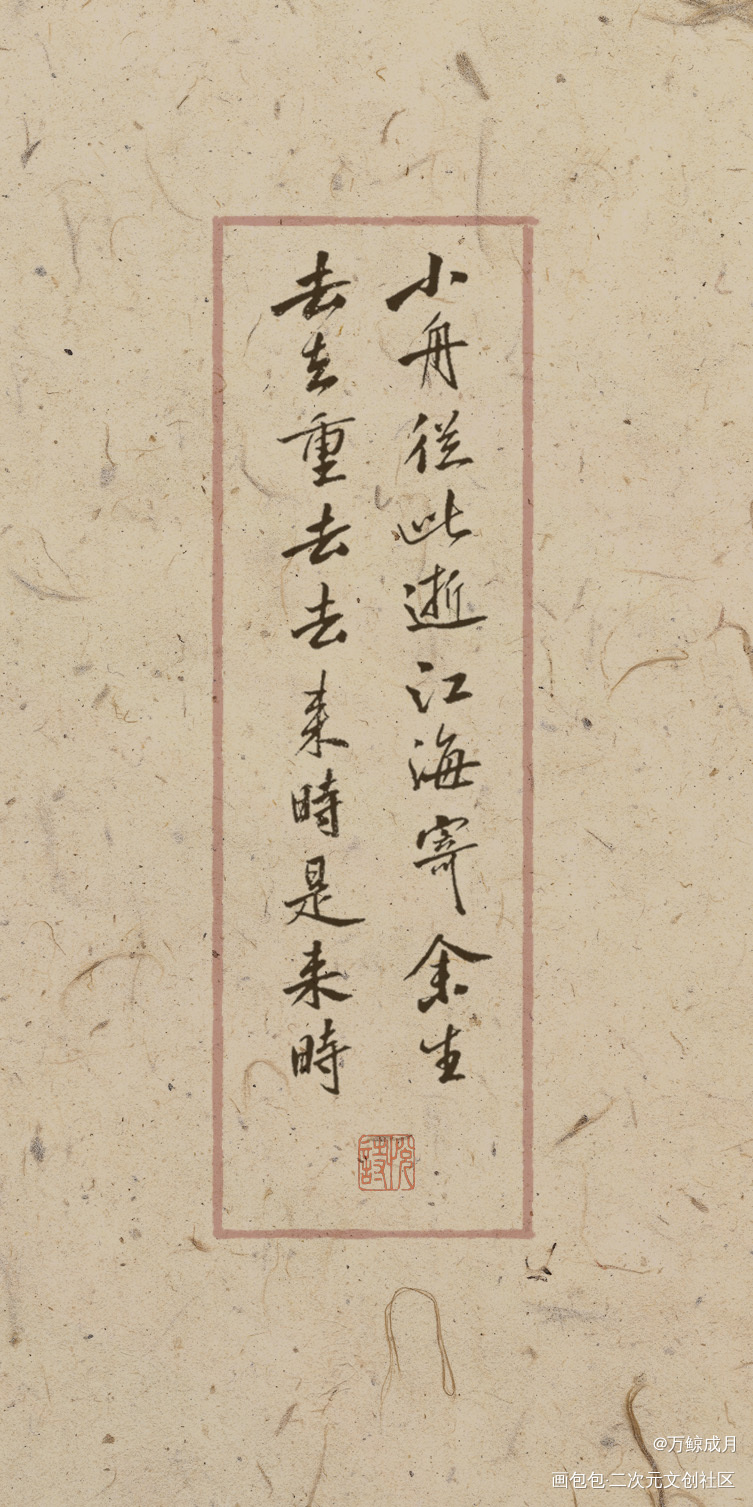 小舟従此逝江海寄余生
去去重去去来時是来時
悦詩
@万鲸成月
画包包·二次元文创社区